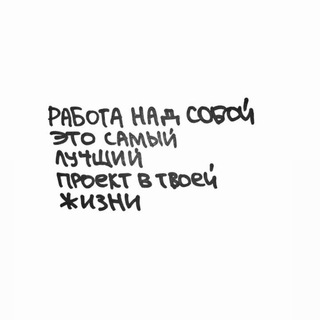 РАБОТА НАД СОБОЙ
ЭТО САМЫЙ
ЛУЧШИЙ
ПРОЕКТ В ТВОЕЙ
ЖИЗНИ